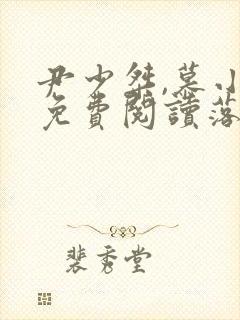 尹少桀,慕小
免費閱讀落
裴秀堂